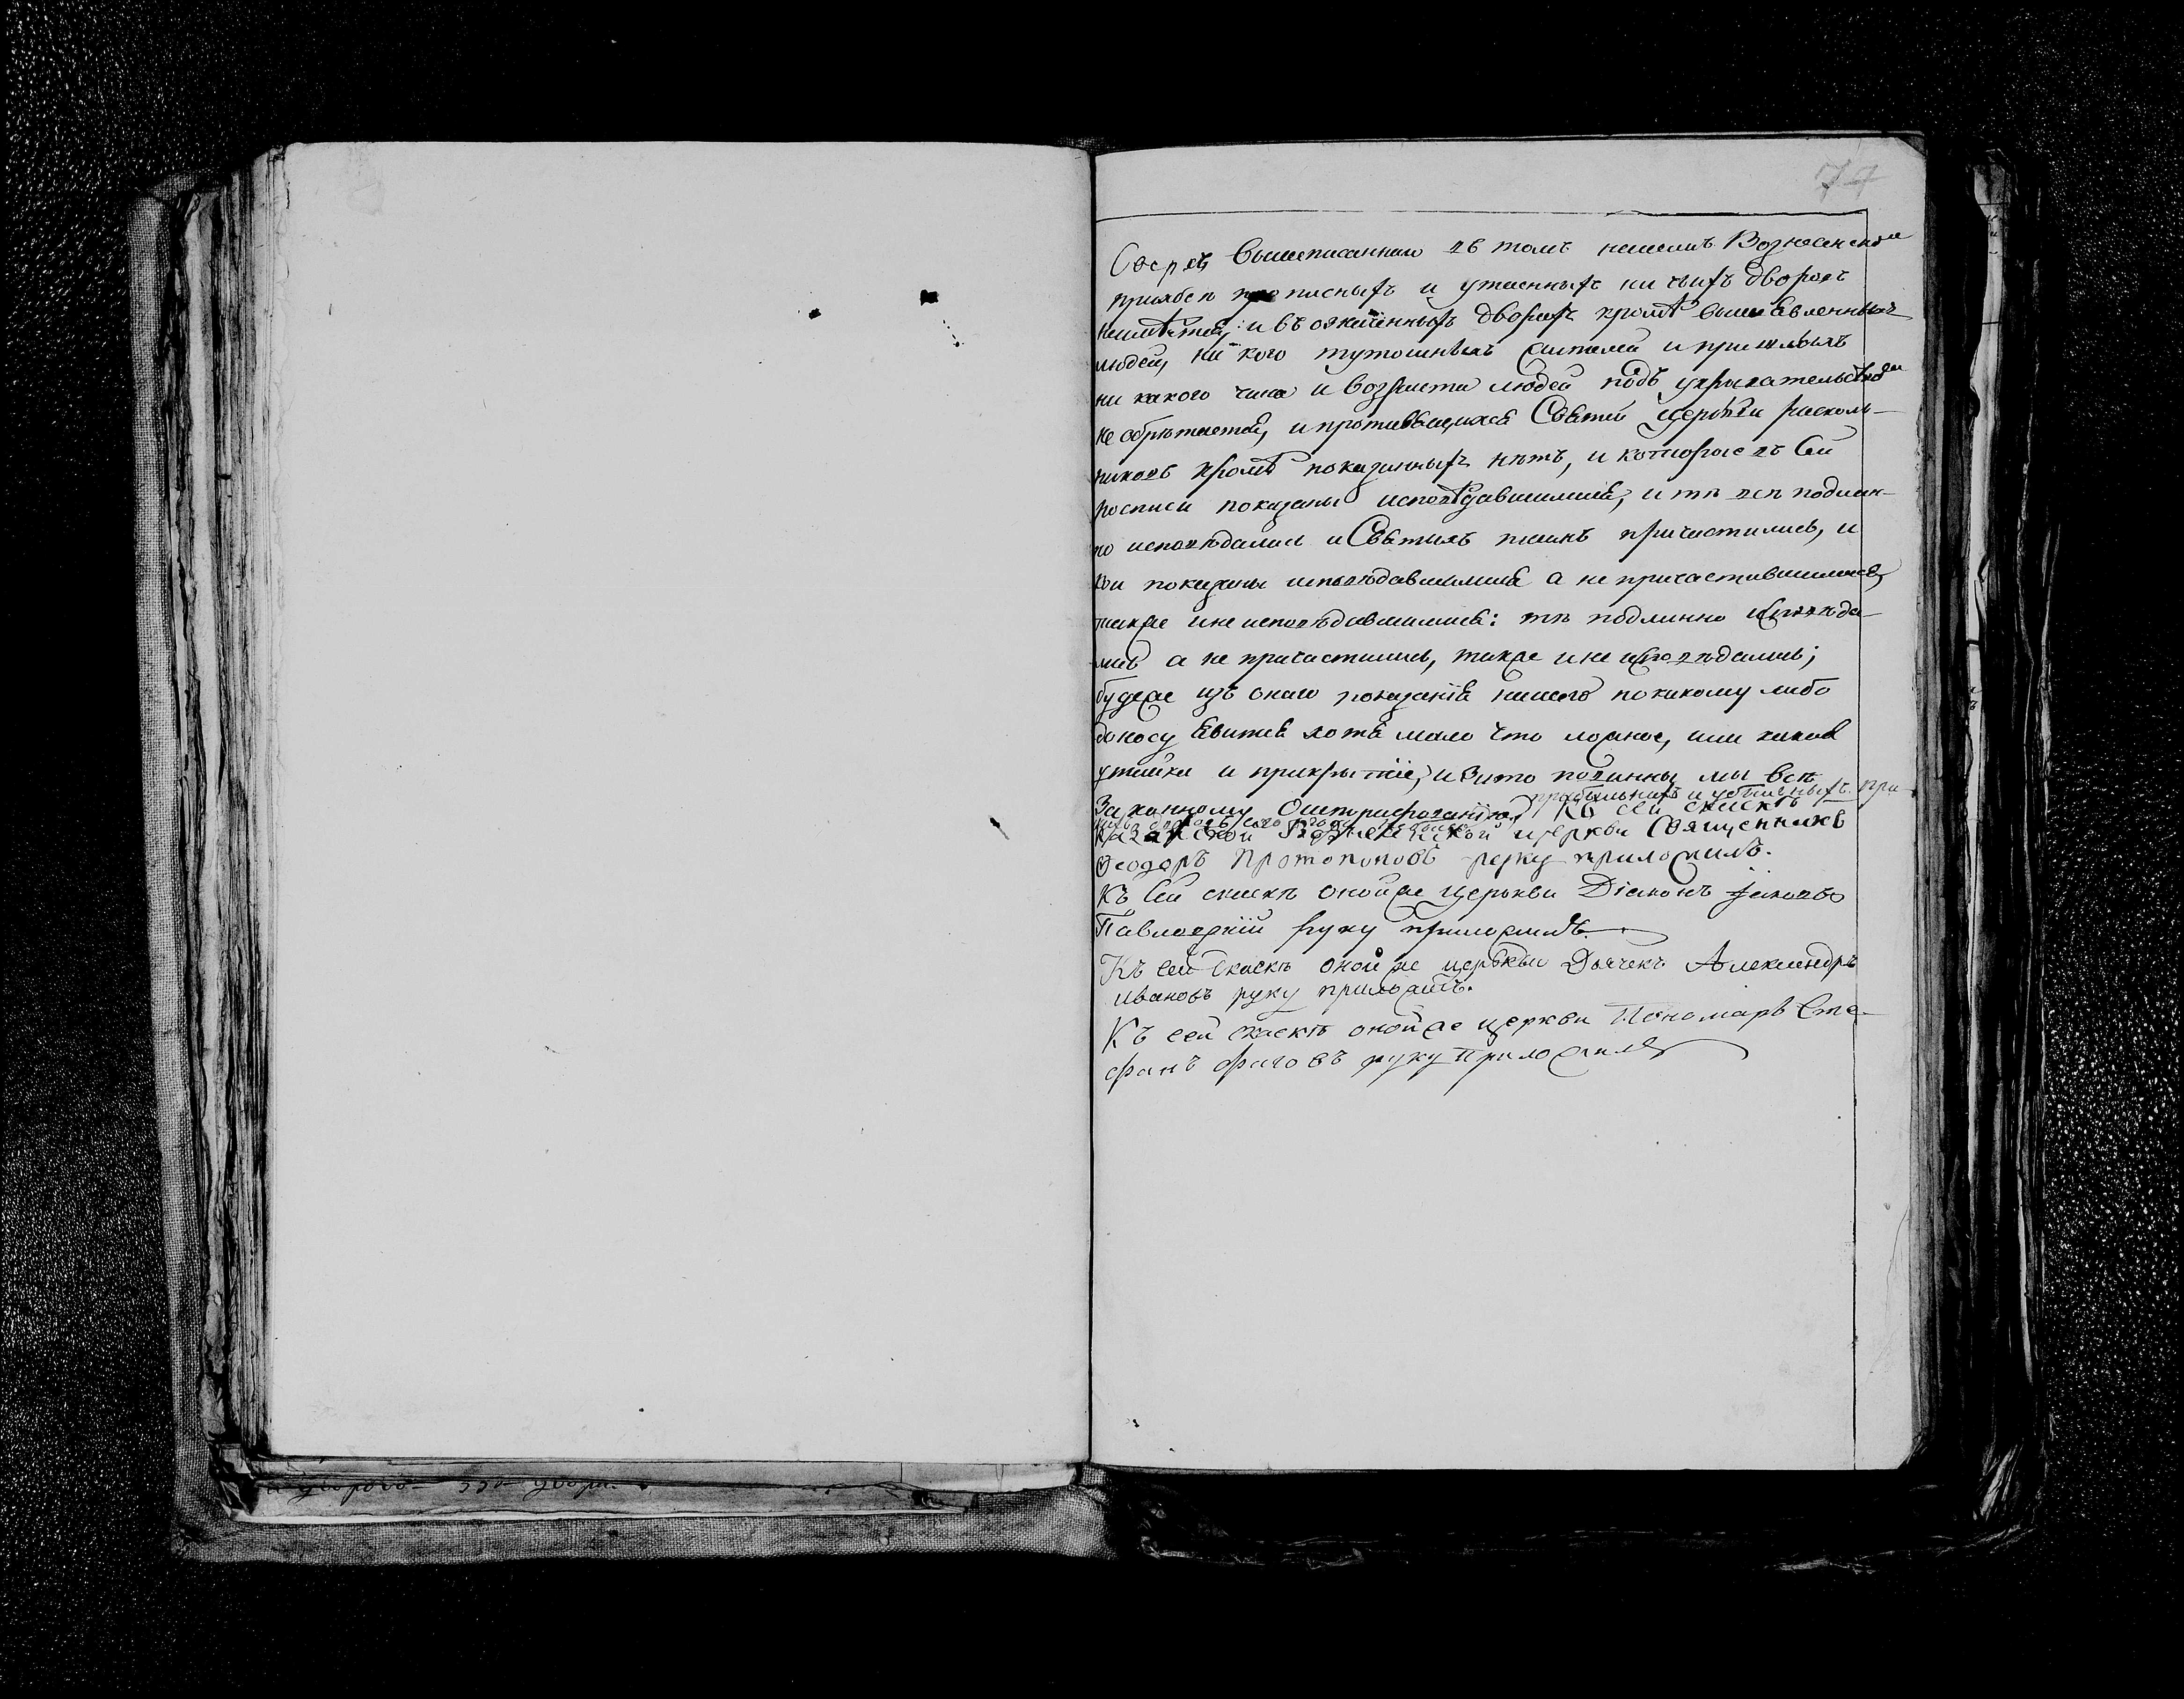 74
Сверхъ вышеписаннаго въ томъ нашемъ Вознесенскомъ
приходѣ прописныхъ и утаенныхъ ни чьихъ дворовъ
неимѣется, и въ означенныхъ дворахъ кромѣ вышеявленныхъ
людей, ни кого тутошныхъ жителей и пришлыхъ
ни какого чина и возраста людей подъ укрывательствомъ
не обрѣтается, и противящихся Святѣй церькви расколь-
никовъ кромѣ показанныхъ нѣтъ, и которые въ сей
росписи показаны исповѣдавшимися, и тѣ всѣ подлин-
но исповѣдались и Святыхъ таинъ причастились, и
кои показаны исповѣдавшимися а не причастившимися,
также и не исповѣдавшимися: тѣ подлинно исповѣда-
лись а не причастились, также и не исповѣдались;
будеже изъ онаго показанія нашего по какому либо
доносу явится хотя мало что ложное, или какая
утайка и прикрытіе, и за то повинны мы всѣ
прибыльныхъ и убылыхъ при
Законному Оштрафованію. Къ сей скаскѣ
сего
Казанской Вознесенской церкви Священникъ
Ѳеодоръ Протопоповъ руку приложилъ.
Къ сей скаскѣ онойже церькви Діаконъ Іаковъ
Павловскій руку приложилъ.
Къ сей скаскѣ онойже церькви Дьячекъ Александръ
Ивановъ руку приложилъ.
Къ сей скаскѣ онойже церкви Пономарь Сте-
фанъ руку приложилъ
двора.